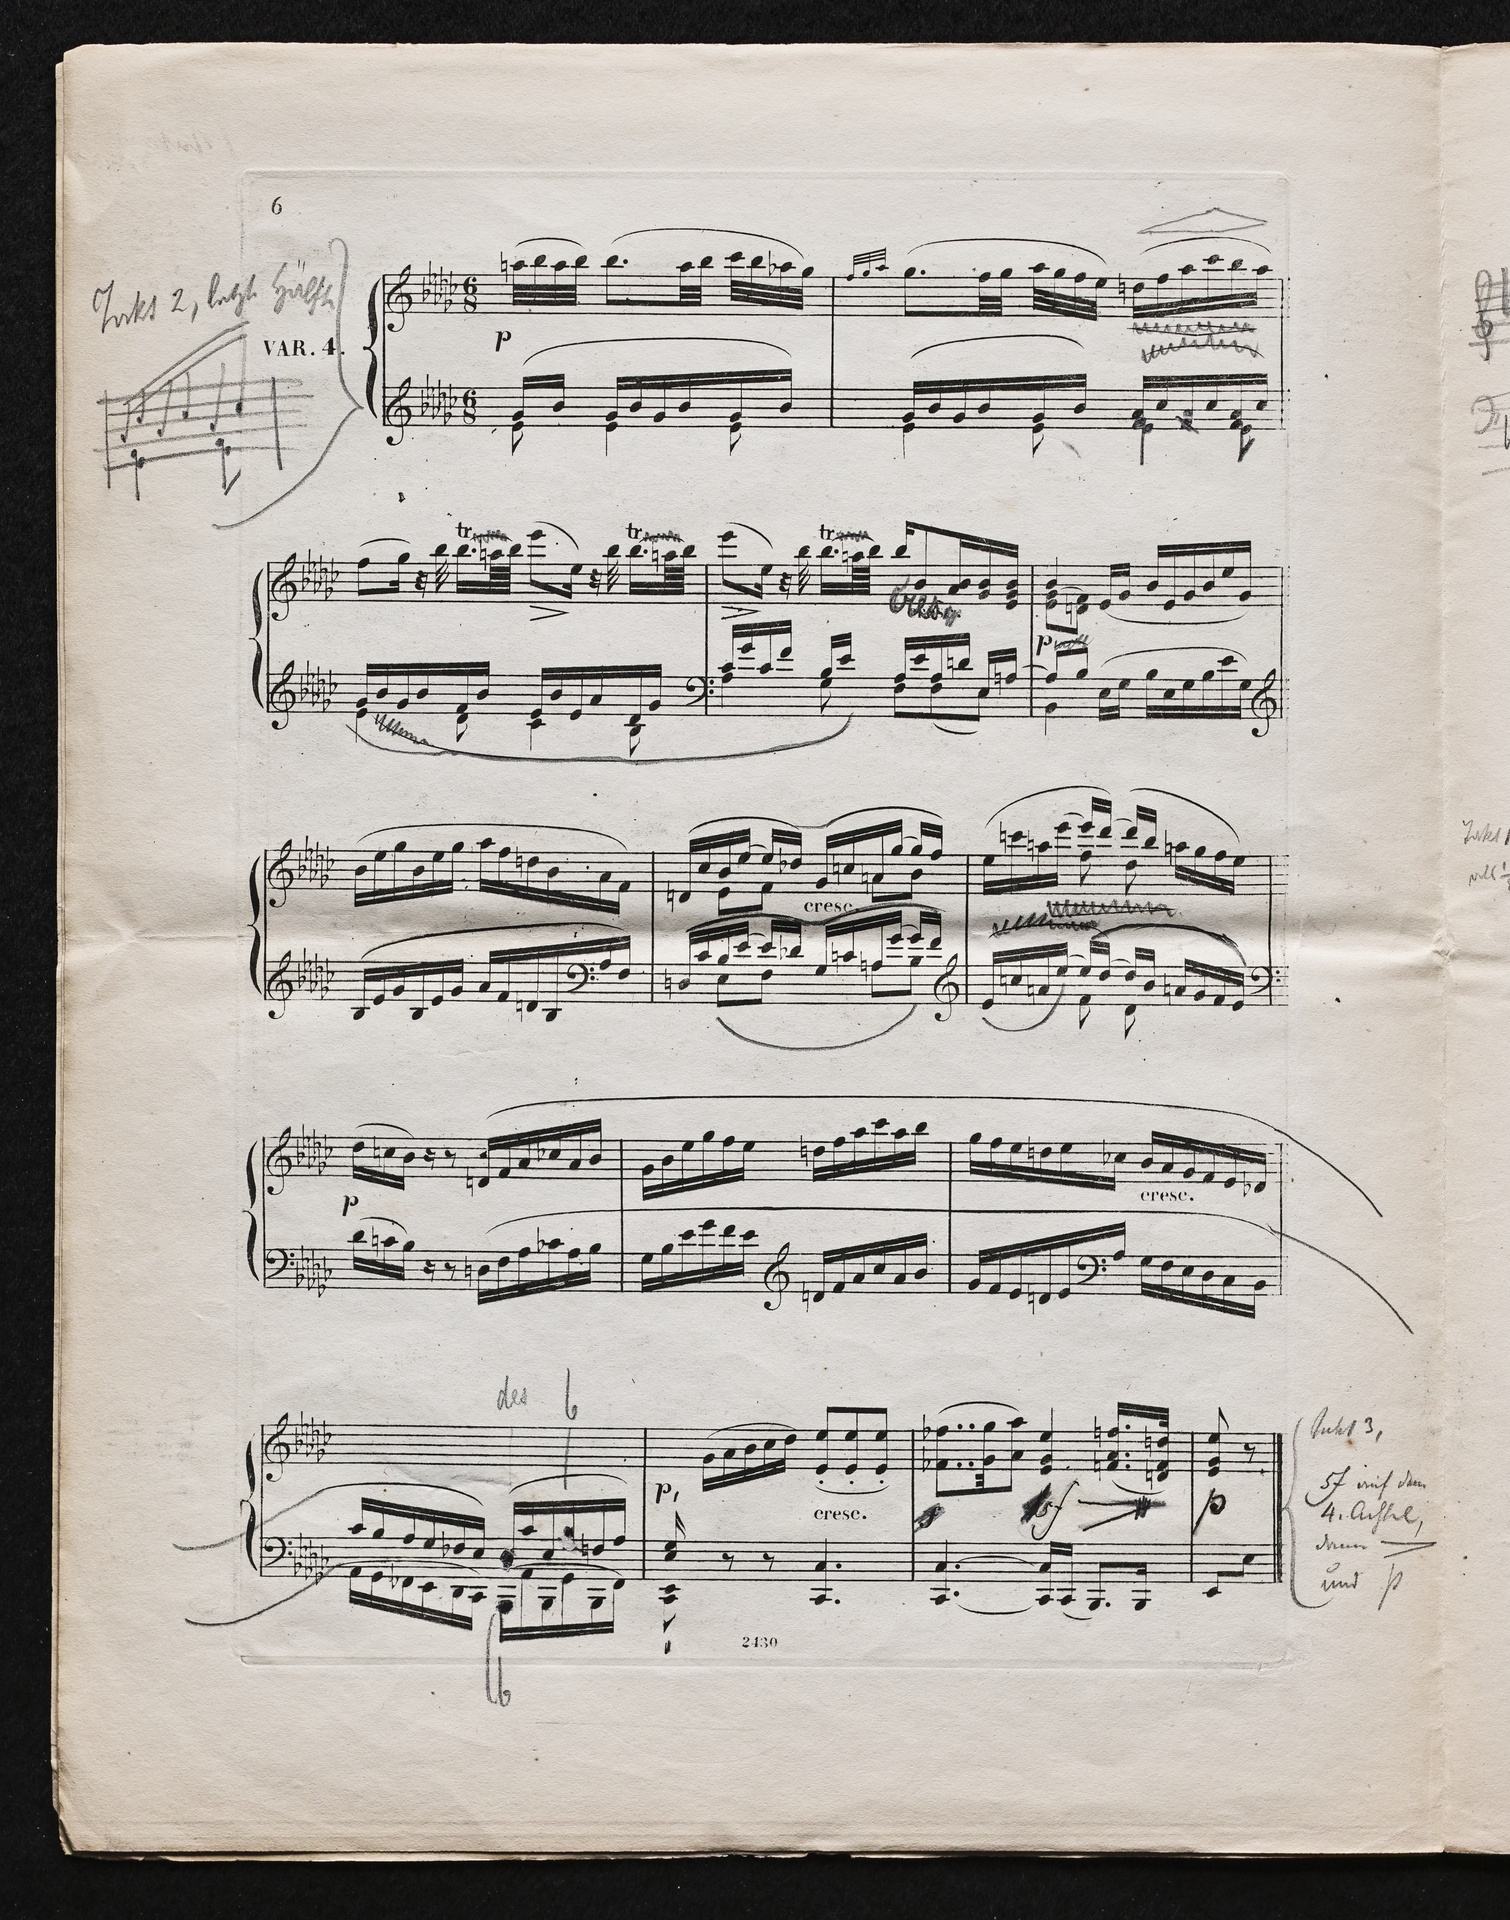 6
Takt 2, letzte Hälfte
VAR. 4.
6 8
p
6 8
tr
tr
tr
p
cresc.
p
cresc.
des
p
cresc.
sf
p
Takt 3,
sf auf dem
4. Achtel,
dann
und p
2430